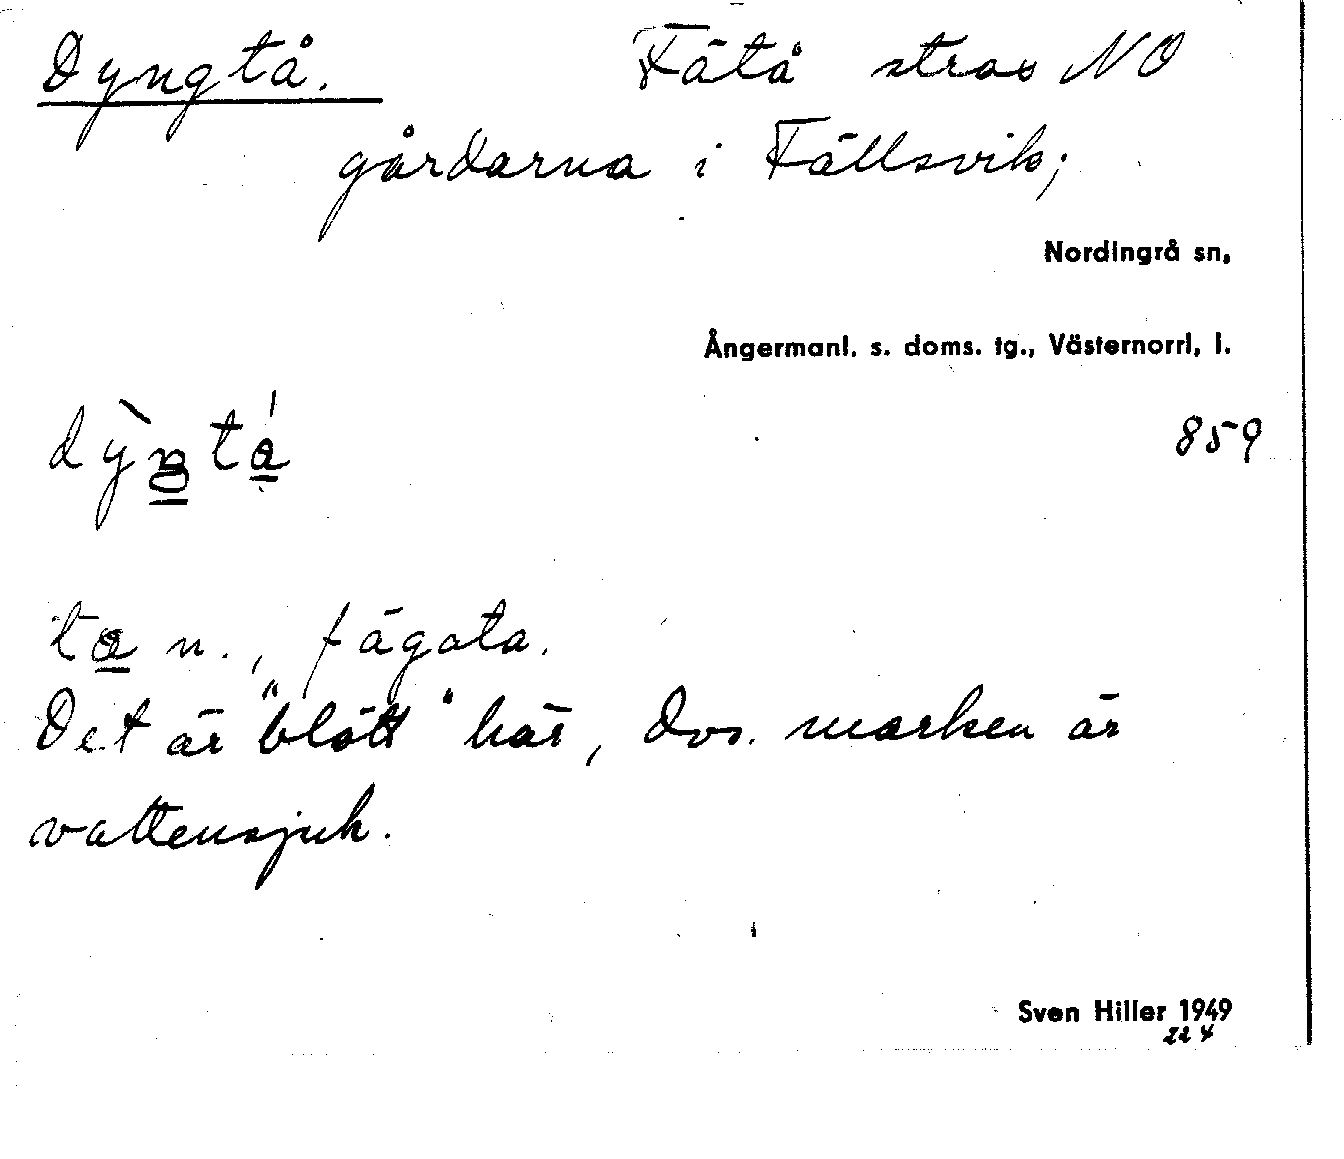 Dyngtå. Fätå strax NO
gårdarna i Fällsvik;
Nordingrå sn,
Ångermanl. s. doms. tg., Västernorrl, l.
859
ta n., fägata.
Det är "blött" här, dvs. marken är
vattensjuk.
Sven Hiller 1949
22 4